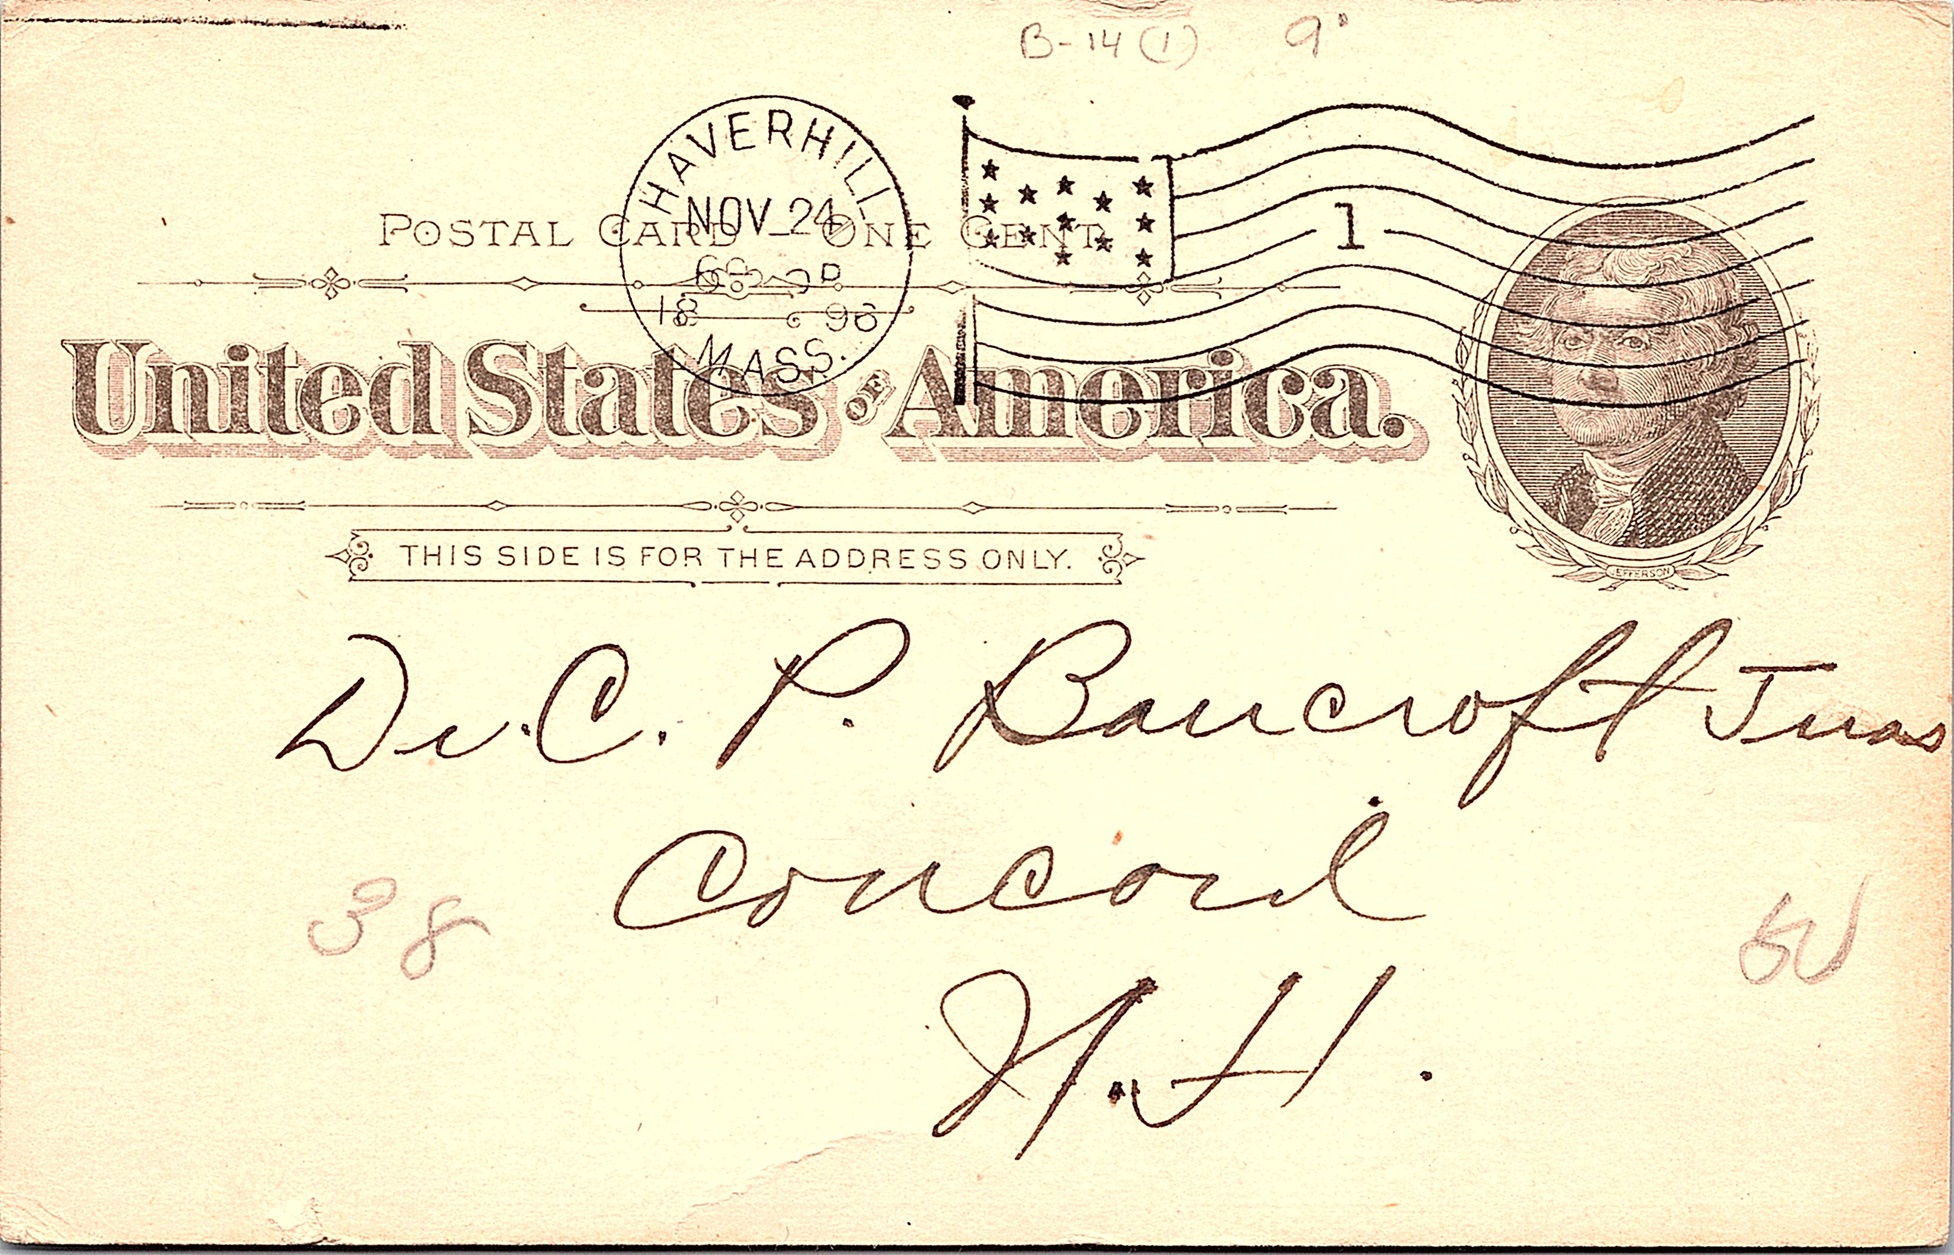 B-14 (1) 9"
HAVERHILL
NOV 24
18 96
MASS.
1
POSTAL CARD ONE CENT
United States OF America.
THIS SIDE IS FOR THE ADDRESS ONLY.
JEFFERSON
Dr. C. P. Bancroft Treas
Concord
N. H.
38